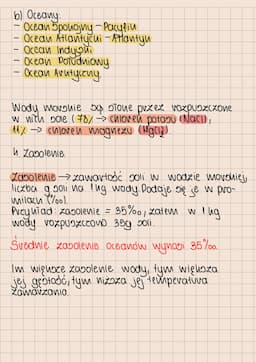 b) Oceany:
- Ocean Spokojny - Pacyfik
- Ocean Atlantycki - Atlantyk
- Ocean Indyjski
- Ocean Południowy
- Ocean Arktyczny
Wody morskie są słone przez rozpuszczone
w nich sole (78% → chlorek potasu (NaCl),
11% → chlorek magnezu (MgCl2)
4. Zasolenie.
Zasolenie → zawartość soli w wodzie morskiej,
liczba g soli na 1kg wody. Podaje się je w pro-
milach (‰).
Przykład: zasolenie = 35‰, zatem w 1 kg
wody rozpuszczono 35g soli.
Średnie zasolenie oceanów wynosi 35‰.
Im większe zasolenie wody, tym większa
jej gęstość, tym niższa jej temperatura
zamarzania.